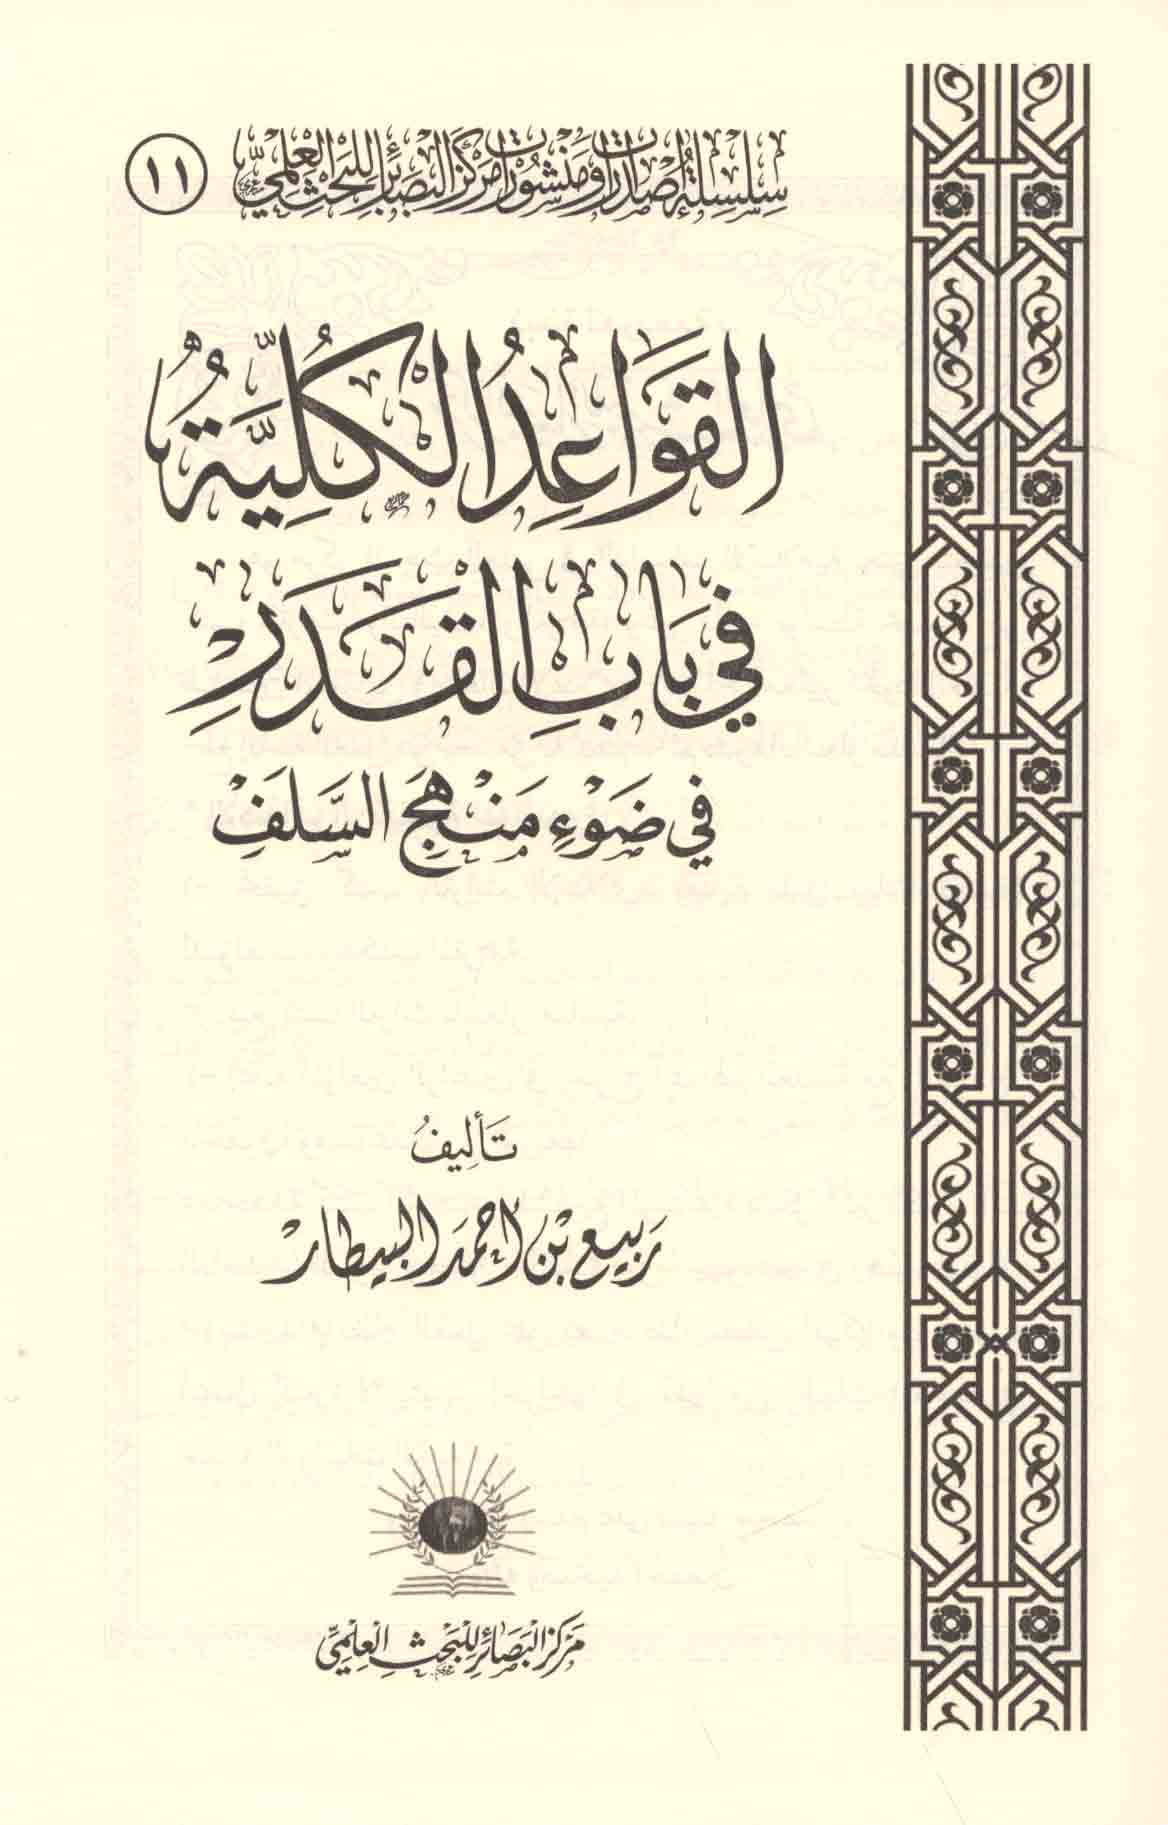 سلسلة إصدارات ومنشورات مركز البصائر للبحث العلمي ١١
القَوَاعِدُ الكُلِّيَّةُ
في بَابِ القَدَرِ
في ضَوْءِ مَنْهَجِ السَّلَفِ
تَأليفُ
رَبيع بْن أحمَد البيطار
مَركز البَصَائِر للبَحْثِ العِلمِيِّ